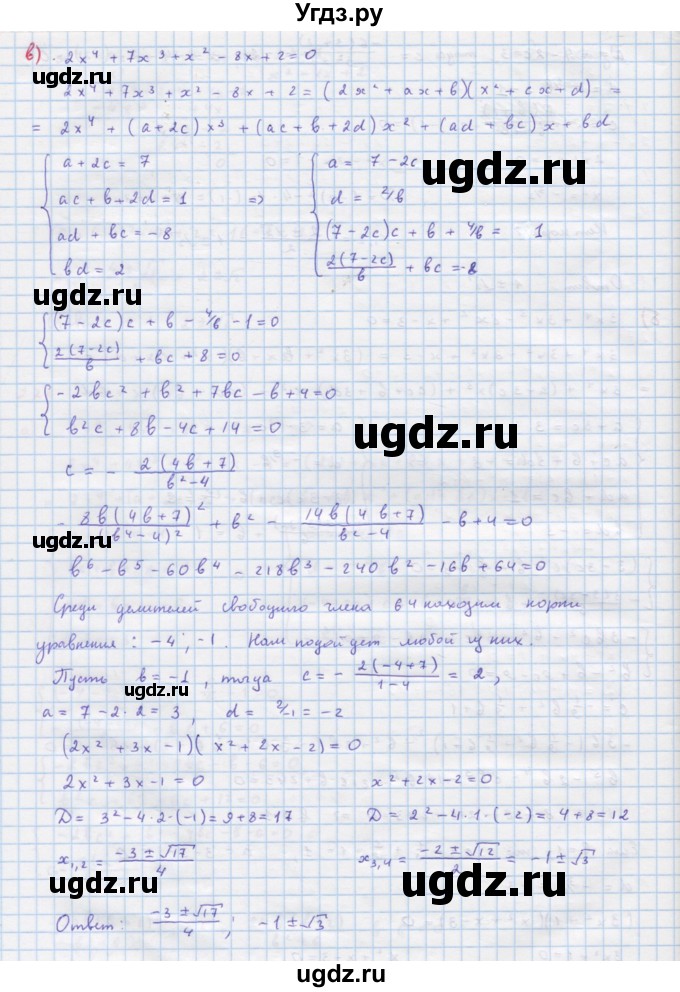 Угдз.ру
в) 2x⁴ + 7x³ + x² - 8x + 2 = 0
2x⁴ + 7x³ + x² - 8x + 2 = (2x² + ax + b)(x² + cx + d) =
= 2x⁴ + (a+2c)x³ + (ac + b + 2d)x² + (ad + bc)x + bd
a + 2c = 7
ac + b + 2d = 1 =>
ad + bc = -8
bd = 2
a = 7 - 2c
d = 2/b
(7 - 2c)c + b + 4/b = 1
2(7-2c)/b + bc = -8
ugdz.ru
ugdz.ru
ugdz.ru
(7 - 2c)c + b - 4/b - 1 = 0
2(7-2c)/b + bc + 8 = 0
-2bc² + b² + 7bc - b + 4 = 0
b²c + 8b - 4c + 14 = 0
ugdz.ru
ugdz.ru
c = - 2(4b+7)/(b²-4)
- 8b(4b+7)²/(b⁴-4)² + b² - 14b(4b+7)/(b²-4) - b + 4 = 0
ugdz.ru
b⁶ - b⁵ - 60b⁴ - 218b³ - 240b² - 16b + 64 = 0
Среди делителей свободного члена 64 находим корни
уравнения: -4; -1. Нам подойдет любой из них.
Пусть b = -1, тогда c = - 2(-4+7)/(1-4) = 2,
ugdz.ru
ugdz.ru
a = 7 - 2·2 = 3, d = 2/-1 = -2
(2x² + 3x - 1)(x² + 2x - 2) = 0
2x² + 3x - 1 = 0 x² + 2x - 2 = 0
D = 3² - 4·2·(-1) = 9 + 8 = 17 D = 2² - 4·1·(-2) = 4 + 8 = 12
x₁,₂ = (-3 ± √17)/4 x₃,₄ = (-2 ± √12)/2 = -1 ± √3
ugdz.ru
ugdz.ru
Ответ: (-3 ± √17)/4; -1 ± √3
ugdz.ru